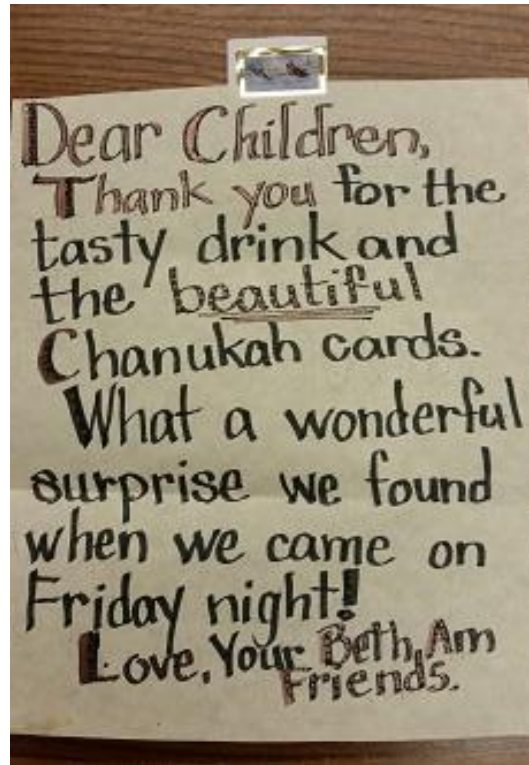 Dear Children,
Thank you for the
tasty drink and
the beautiful
Chanukah cards.
What a wonderful
surprise we found
when we came on
Friday night!
Love, Your Beth Am
Friends.